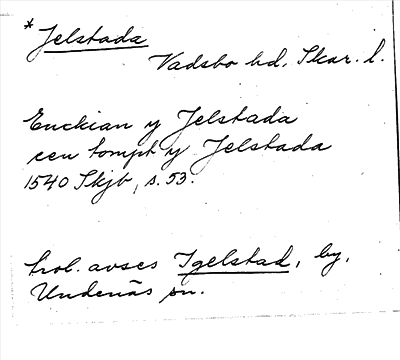 *Jelstada
Vadsbo hd, Skar. l.
Enckian y Jelstada
een tompt y Jelstada
1540 Skjb, s. 53.
trol. avses Igelstad, by,
Undenäs sn.